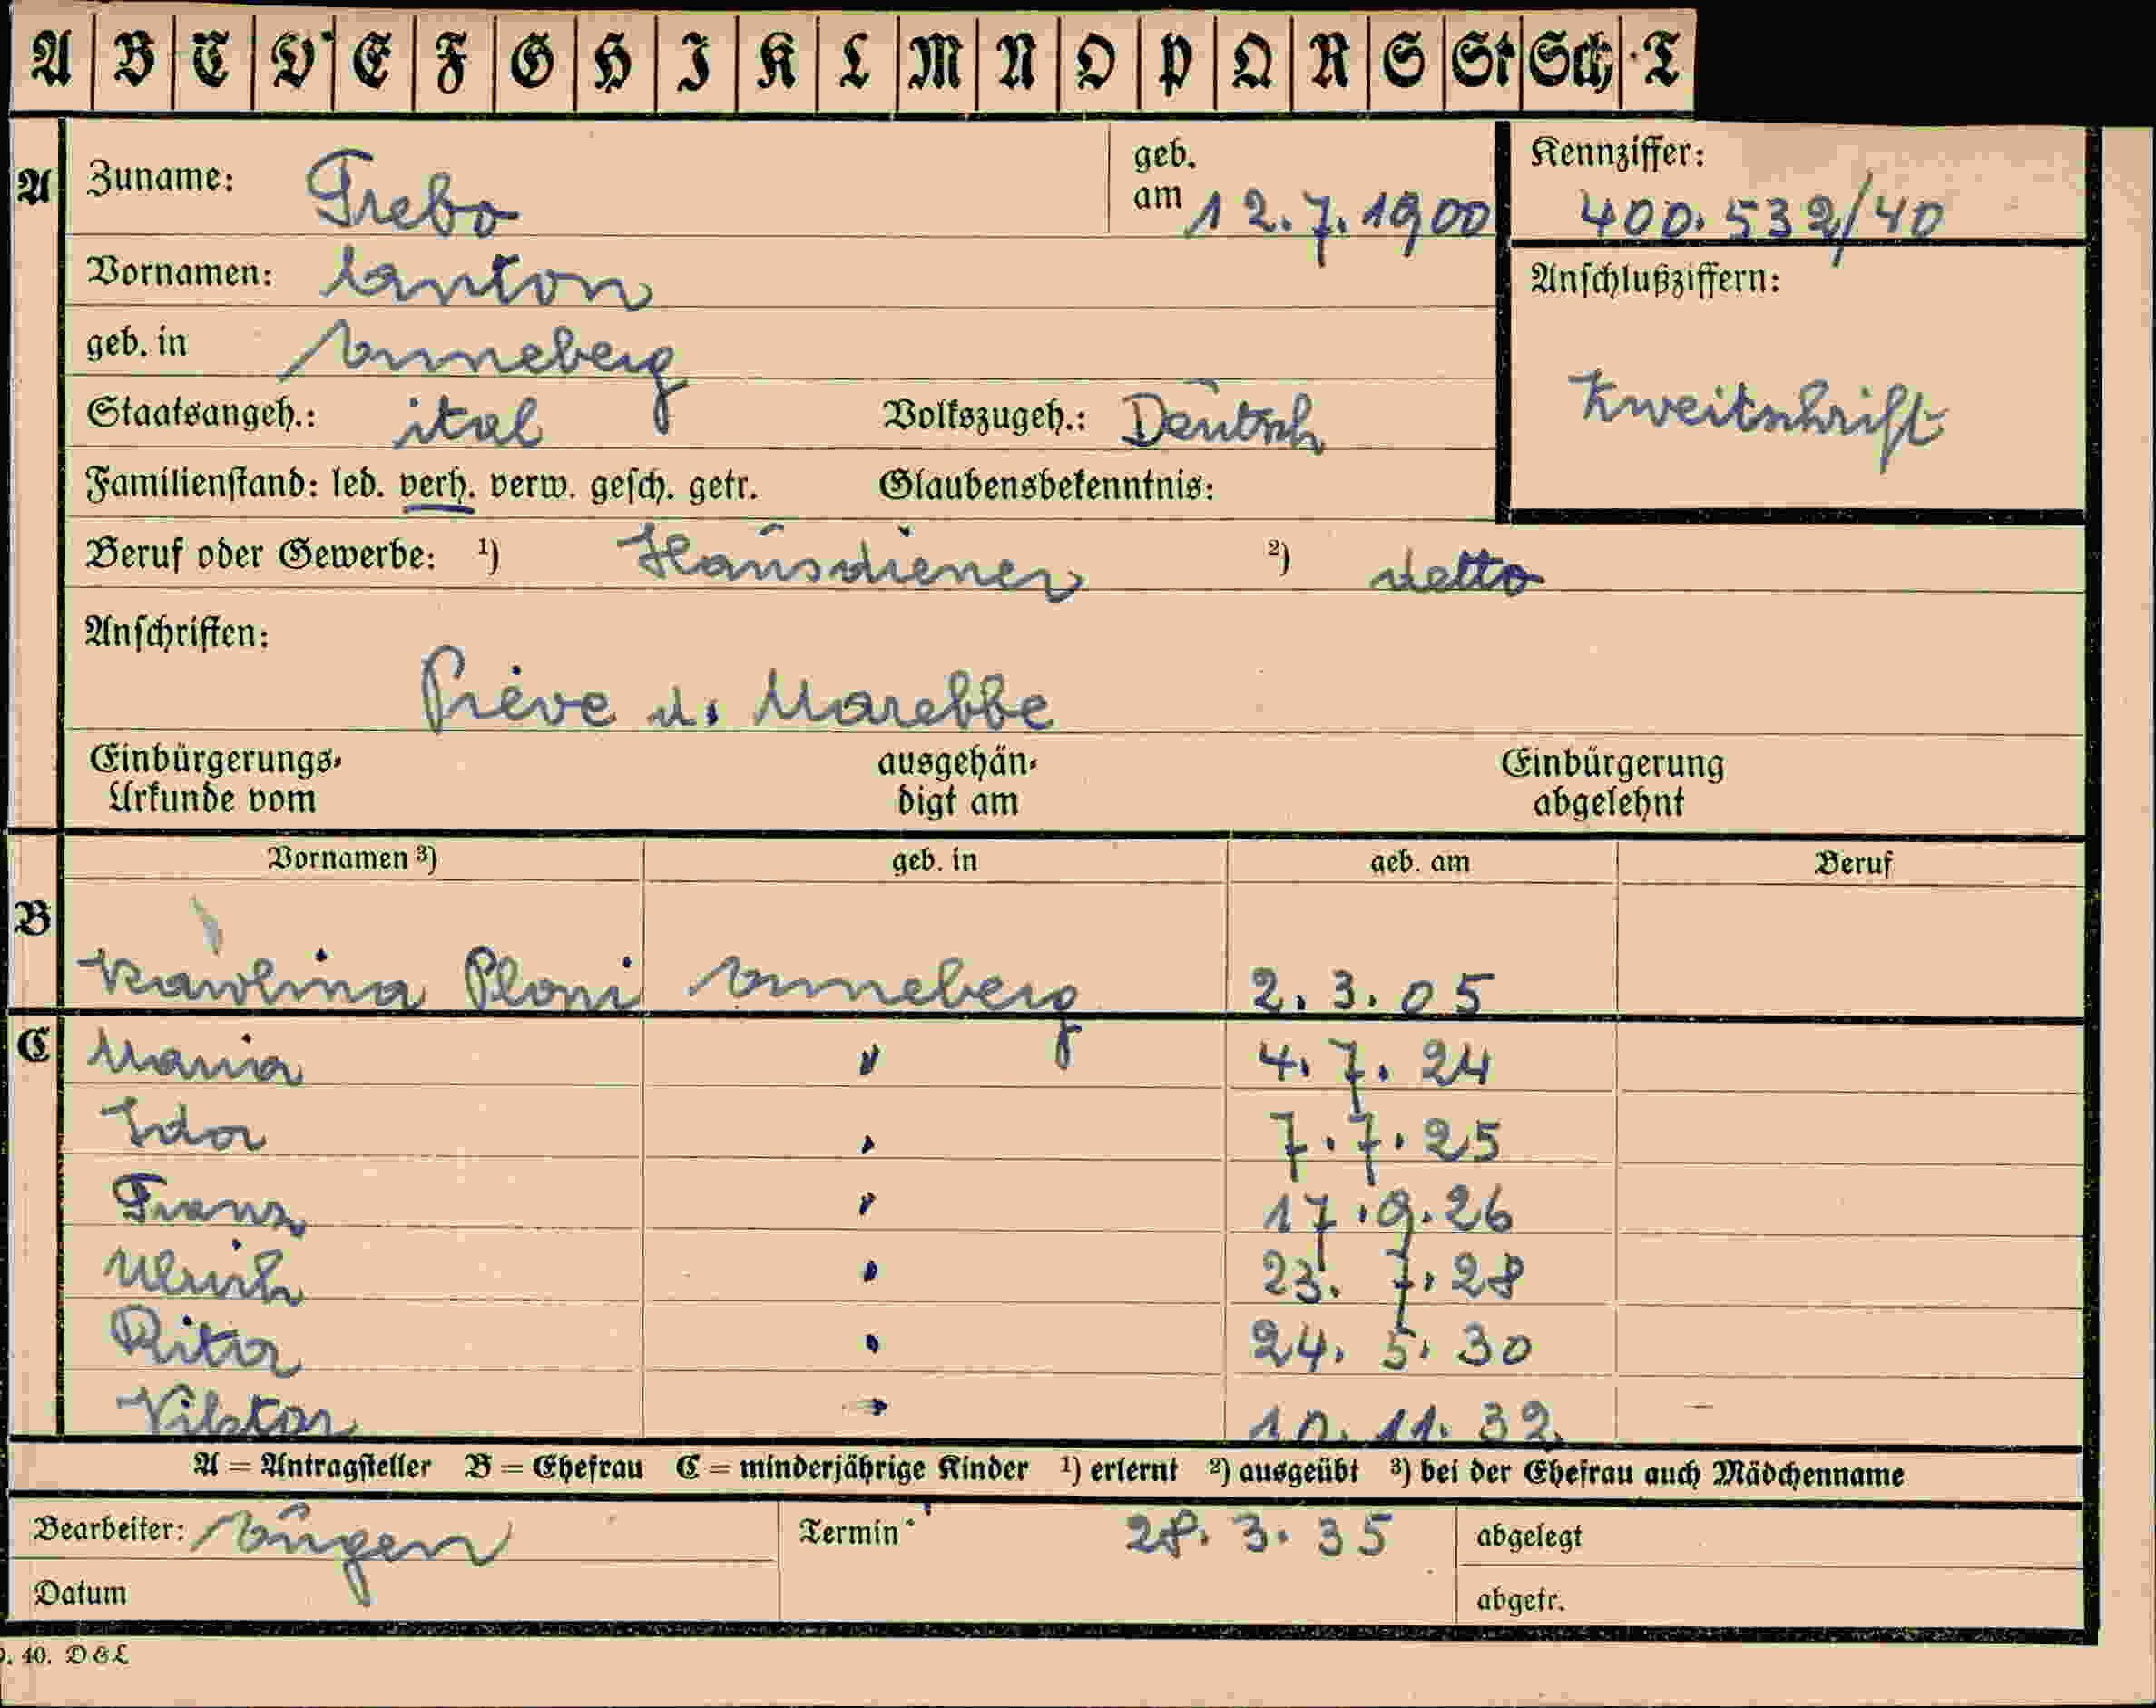 A B C D E F G H I K L M N O P Q R S St Sch T
A Zuname: Trebo geb. am 12.7.1900 Kennziffer: 400.532/40
Vornamen: Anton Anschlußziffern:
geb. in Enneberg
Zweitschrift
Staatsangeh.: ital Volkszugeh.: Deutsch
Familienstand: led. verh. verw. gesch. getr. Glaubensbekenntnis:
Beruf oder Gewerbe: ¹) Hausdiener ²) detto
Anschriften:
Pieve d. Marebbe
Einbürgerungs- ausgehän- Einbürgerung
Urkunde vom digt am abgelehnt
Vornamen ³) geb. in geb. am Beruf
B
Karolina Ploni Enneberg 2.3.05
C Maria " 4.7.24
Ida " 7.7.25
Franz " 17.9.26
Ulrich " 23.7.28
Rita " 24.5.30
Viktor " 10.11.32
A = Antragsteller B = Ehefrau C = minderjährige Kinder ¹) erlernt ²) ausgeübt ³) bei der Ehefrau auch Mädchenname
Bearbeiter: Eugen Termin 28.3.35 abgelegt
Datum abgetr.
40. D&L